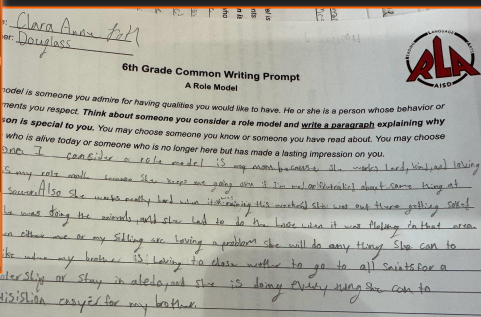 Clara Anne
Douglass
READING LANGUAGE ARTS
RLA
AISD
6th Grade Common Writing Prompt
A Role Model
model is someone you admire for having qualities you would like to have. He or she is a person whose behavior or
ments you respect. Think about someone you consider a role model and write a paragraph explaining why
son is special to you. You may choose someone you know or someone you have read about. You may choose
who is alive today or someone who is no longer here but has made a lasting impression on you.
I consider a role model is my mom because she works hard, kind, and loving
is my role model because she keeps me going even if I'm mad or about some thing at
Also she works really hard when it's raining this weekend she was out there getting soked
he was doing the animals, and she had to do the when it was in that area
en either me or my sibling are having a problem she will do any thing she can to
ike when my brother is having to chose wether to go to all saints for a
or stay in aledo, and she is doing every thing she can to
for my brother.